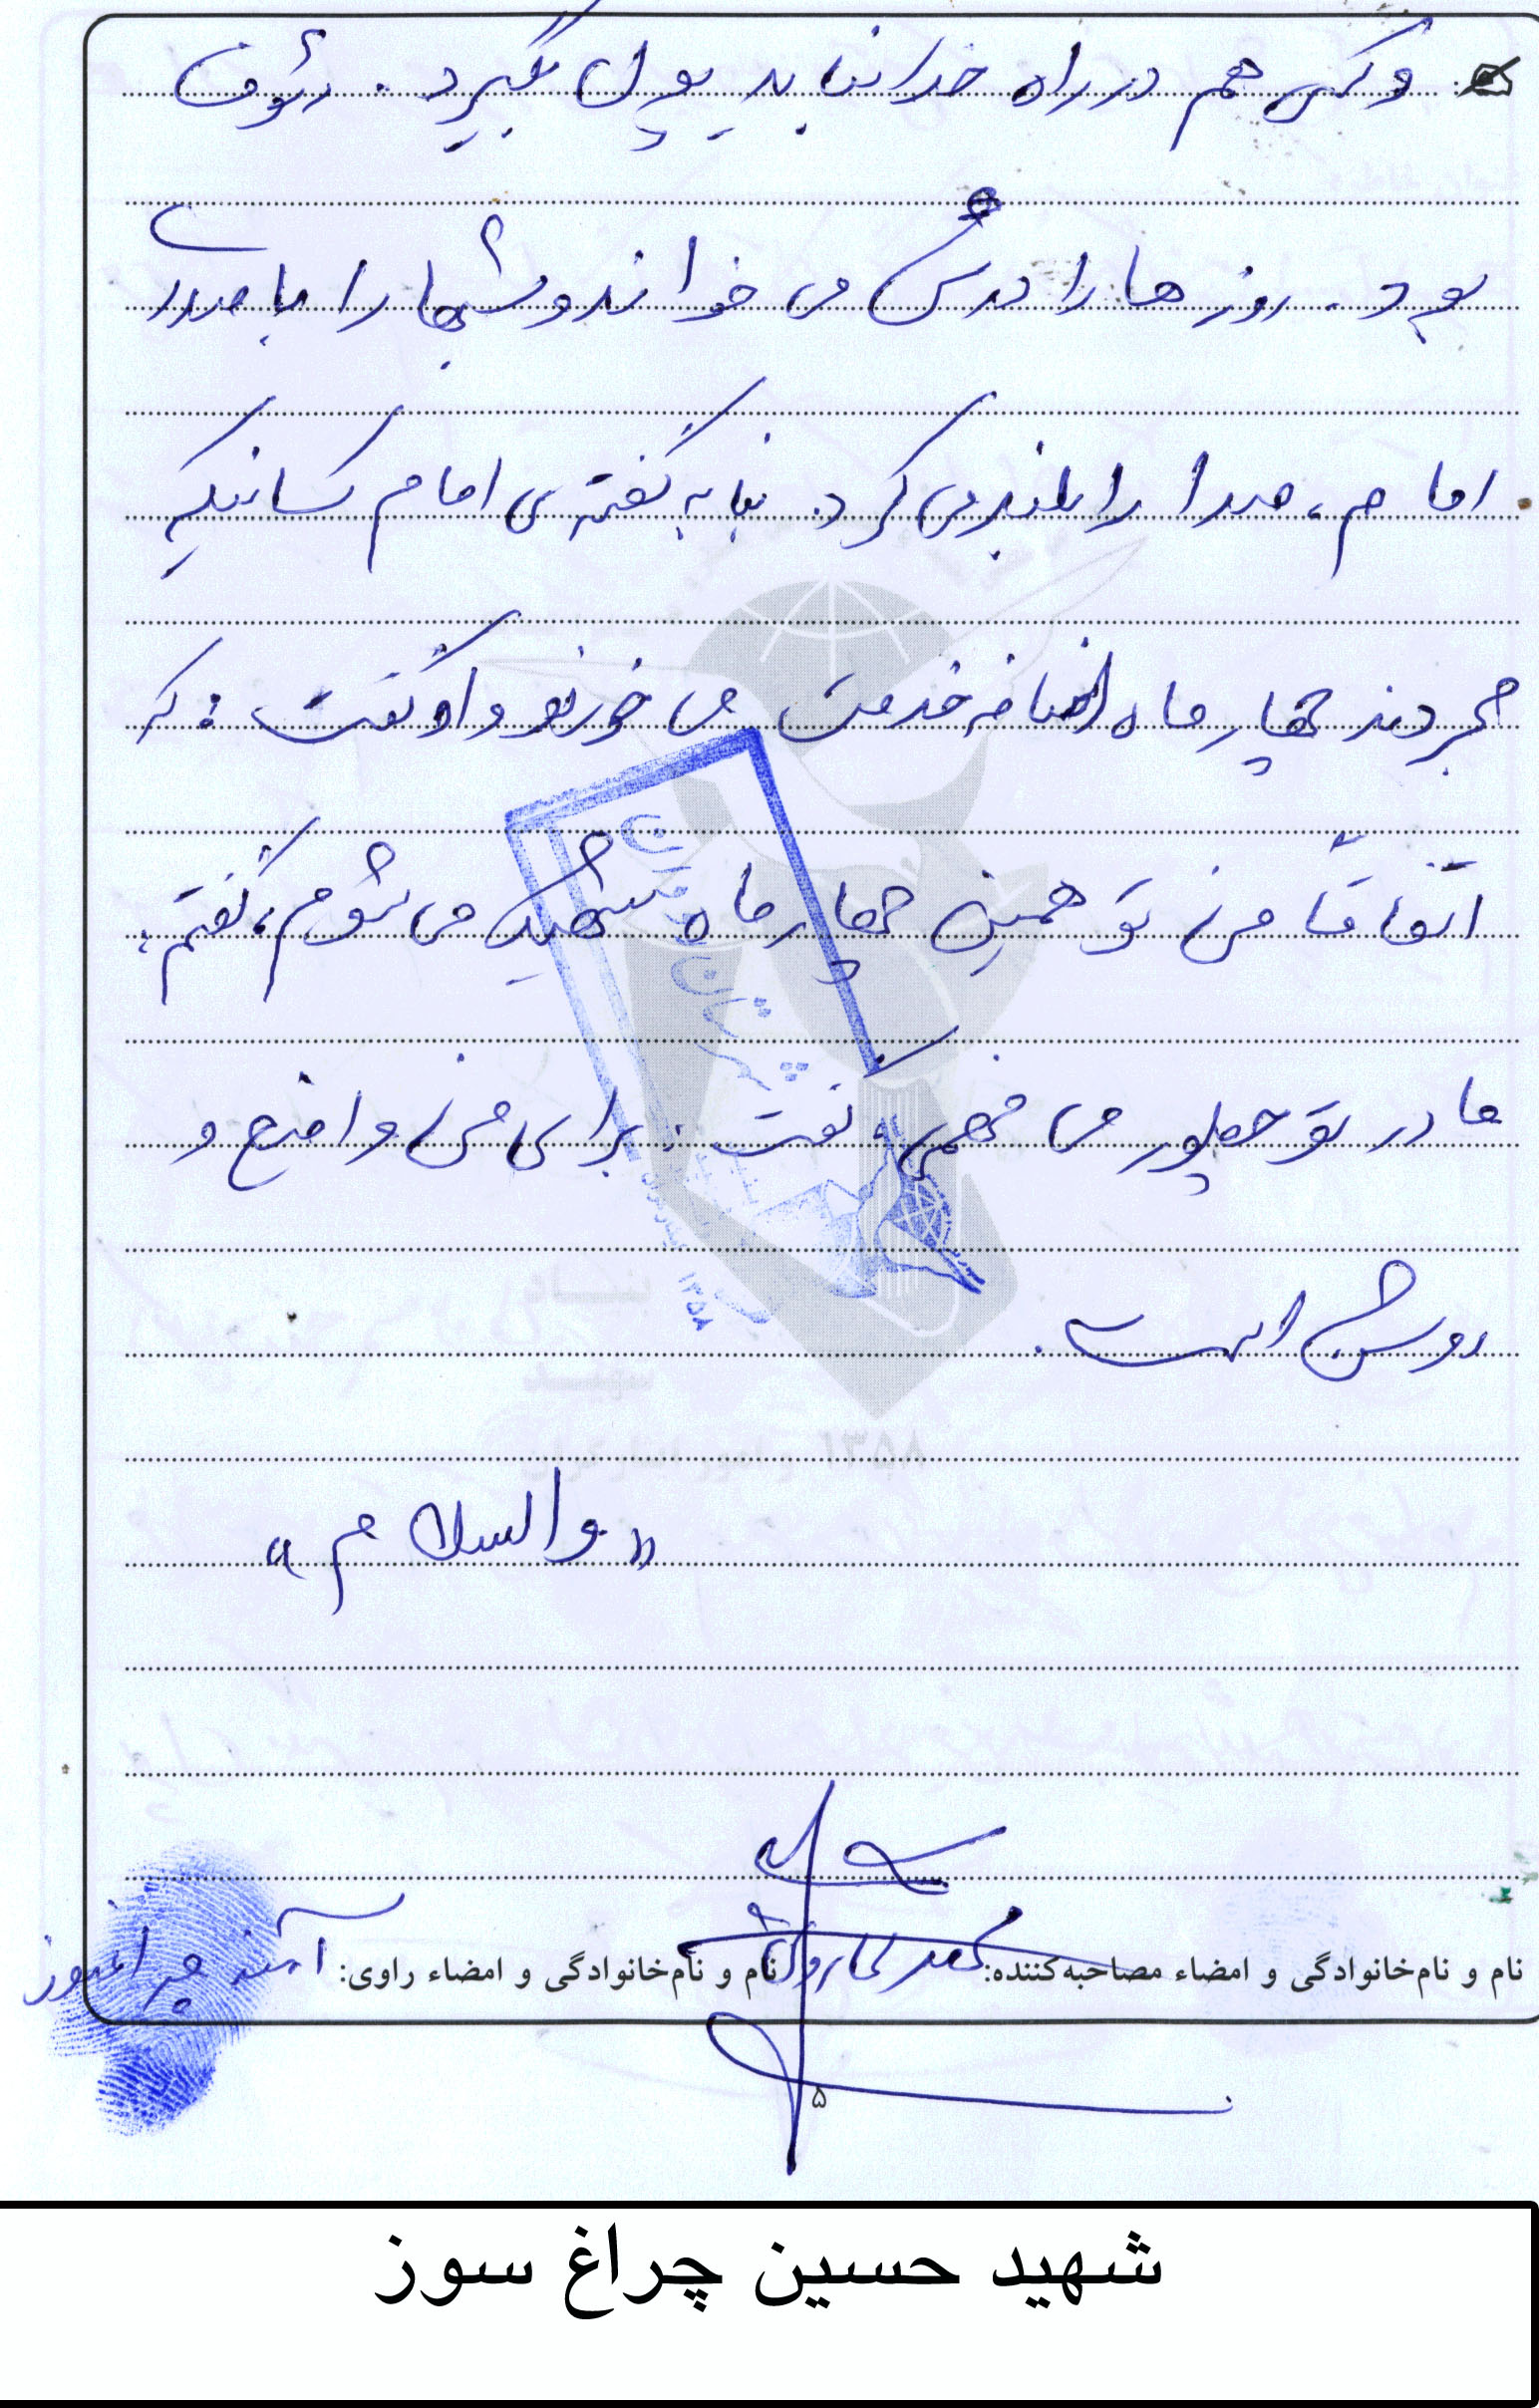 و کسی هم در راه خدا نباید پول بگیرد. رئوف
بود. روزها را درس می خواند و شبها را با صدای
امام، صدا را بلند می کرد. بنا به گفته ی امام کسانیکه
مجردند چهار ماه اضافه خدمت می خورند و او گفت: که
اتفاقاً من تو همین چهار ماه شهید می شوم، گفتم:
مادر تو چطور می فهمی، گفت: برای من واضح و
روشن است.
«والسلام»
نام و نام‌خانوادگی و امضاء مصاحبه‌کننده: محمد
نام و نام‌خانوادگی و امضاء راوی: آمنه چراغسوز
۵
شهید حسین چراغ سوز
۱۳۵۸